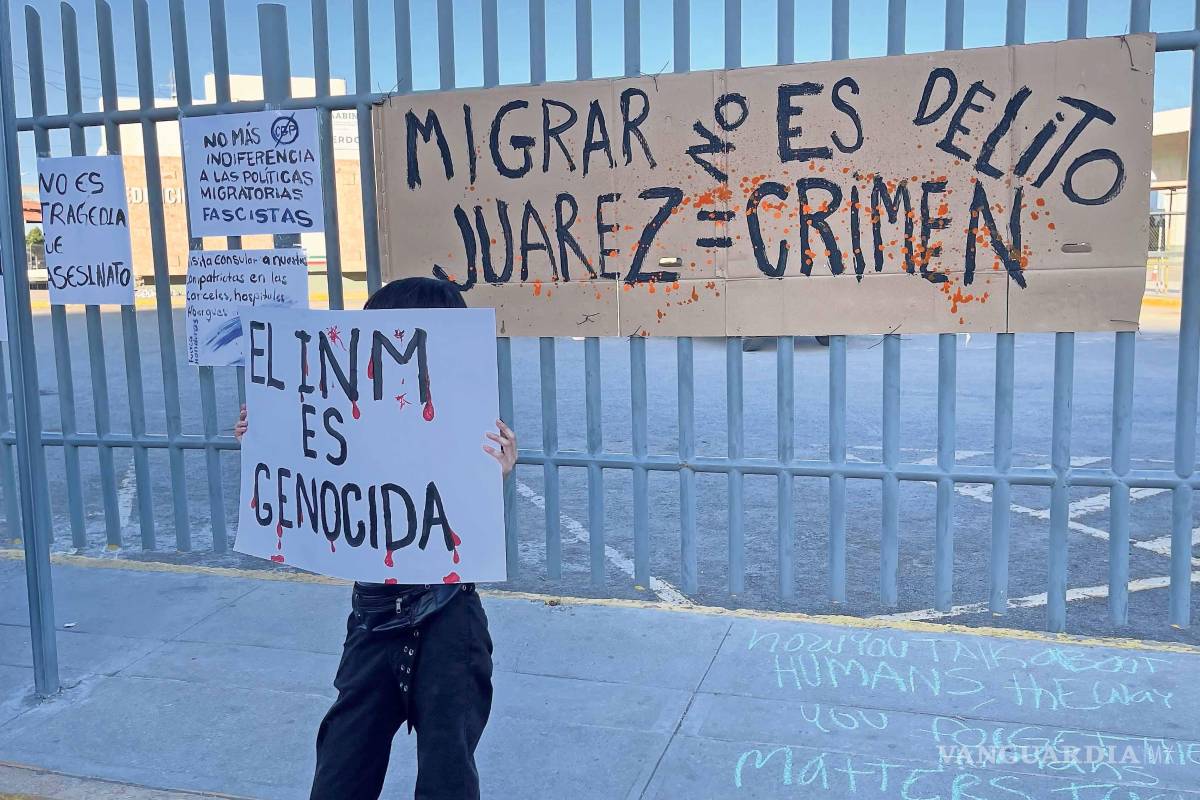 NO MÁS CBP
INDIFERENCIA
A LAS POLÍTICAS
MIGRATORIAS
FASCISTAS
NO ES
TRAGEDIA
ASESINATO
consular a
en las
carceles, hospitales
MIGRAR NO ES DELITO
JUAREZ = CRIMEN
EL INM
ES
GENOCIDA
How YOU TALK about
HUMANS, the way
YOU
Matters
VANGUARDIA MX